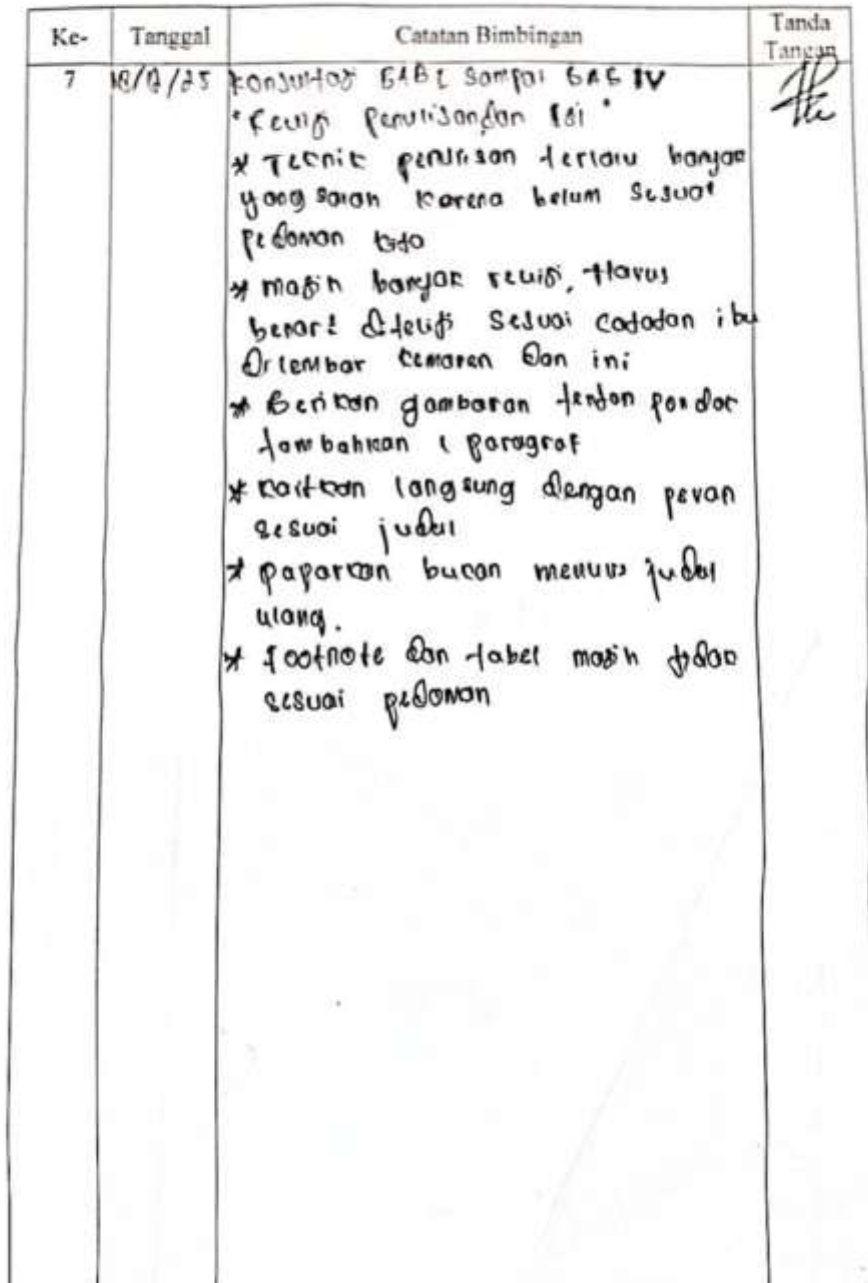 Ke- Tanggal Catatan Bimbingan Tanda Tangan
7 Konsultasi BAB I Sampai BAB IV
"Revisi Penulisan dan Isi"
* Teknik penulisan terlalu banyak
yang salah karena belum sesuai
pedoman kita
* masih banyak revisi, Harus
benar2 diteliti sesuai catatan ibu
Di lembar kemaren dan ini
* Berikan gambaran pondok
tambahkan 1 paragraf
* kaitkan langsung dengan peran
sesuai judul
* paparkan bukan menulis judul
ulang.
* Footnote dan tabel masih tidak
sesuai pedoman